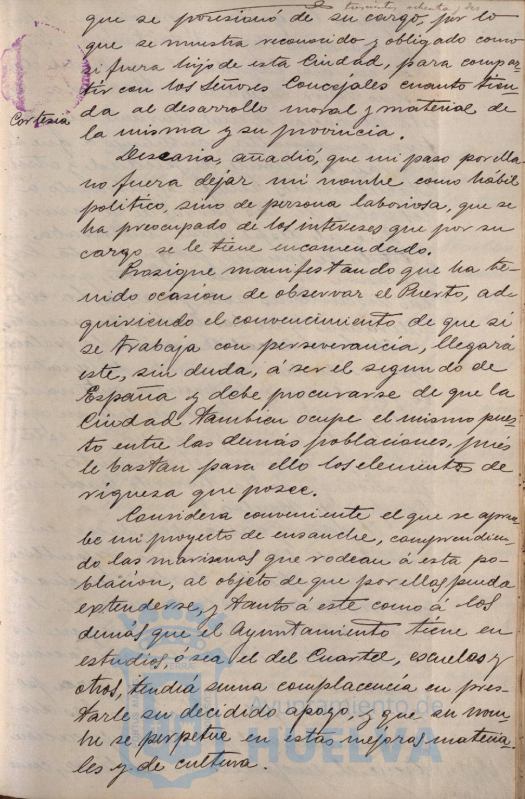 treinta, ochenta y dos
que se posesionó de su cargo, por lo
que se muestra reconocido y obligado como
si fuera hijo de esta Ciudad, para compar-
tir con los Señores Concejales cuanto tien-
da al desarrollo moral y material de
Cortesia
la misma y su provincia.
Desearia, añadió, que mi paso por ella
no fuera dejar mi nombre como hábil
politico, sino de persona laboriosa, que se
ha preocupado de los intereses que por su
cargo se le tiene encomendado.
Prosigue manifestando que ha te-
nido ocasion de observar el Puerto, ad-
quiriendo el convencimiento de que si
se trabaja con perseverancia, llegará
este, sin duda, á ser el segundo de
España y debe procurarse de que la
Ciudad tambien ocupe el mismo pues-
to entre las demás poblaciones, pués
le bastan para ello los elementos de
riquesa que posee.
Considera conveniente el que se aprue-
be un proyecto de ensanche, comprendien-
do las marismas que rodean á esta po-
blacion, al objeto de que por ellas pueda
extenderse, y tanto á este como á los
demás que el Ayuntamiento tiene en
estudios, ó sea el del Cuartel, escuelas y
otros, tendrá suma complacencia en pres-
tarle su decidido apoyo, y que su nom-
bre se perpetue en estas mejoras materia-
les y de cultura.
Ayuntamiento de
HUELVA